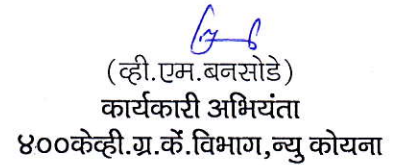 (व्ही.एम.बनसोडे)
कार्यकारी अभियंता
४००केव्ही.ग्र.कें.विभाग,न्यु कोयना